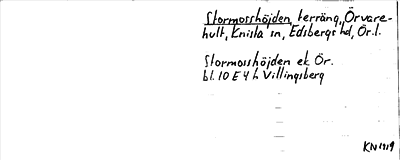 Stormosshöjden, terräng, Örvare-
hult, Knista sn, Edsbergs hd, Ör.l.
Stormosshöjden ek Ör.
bl. 10 E 4 h Villingsberg
KN 1919